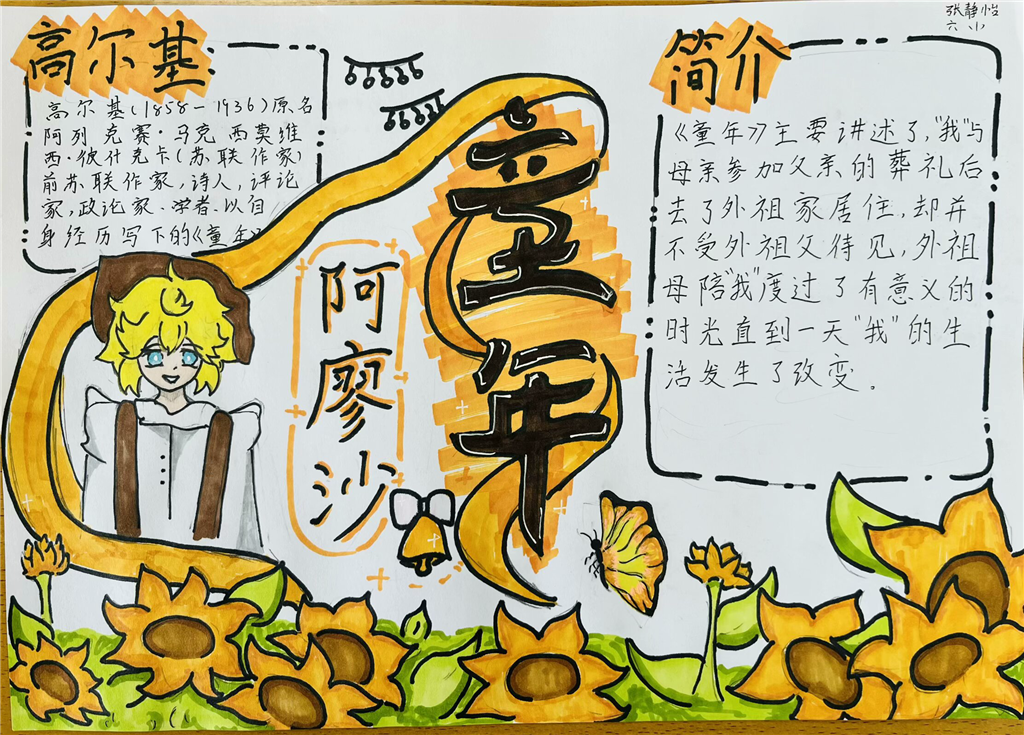 张静怡
六小
高尔基:
高尔基(1858-1936)原名
阿列克赛·马克西莫维
西·彼什克卡(苏联作家)
前苏联作家,诗人,评论
家,政论家、学者、以自
身经历写下的《童年》
阿廖沙
童年
简介
《童年》主要讲述了,"我"与
母亲参加父亲的葬礼后
去了外祖家居住,却并
不受外祖父待见,外祖
母陪"我"度过了有意义的
时光直到一天"我"的生
活发生了改变。